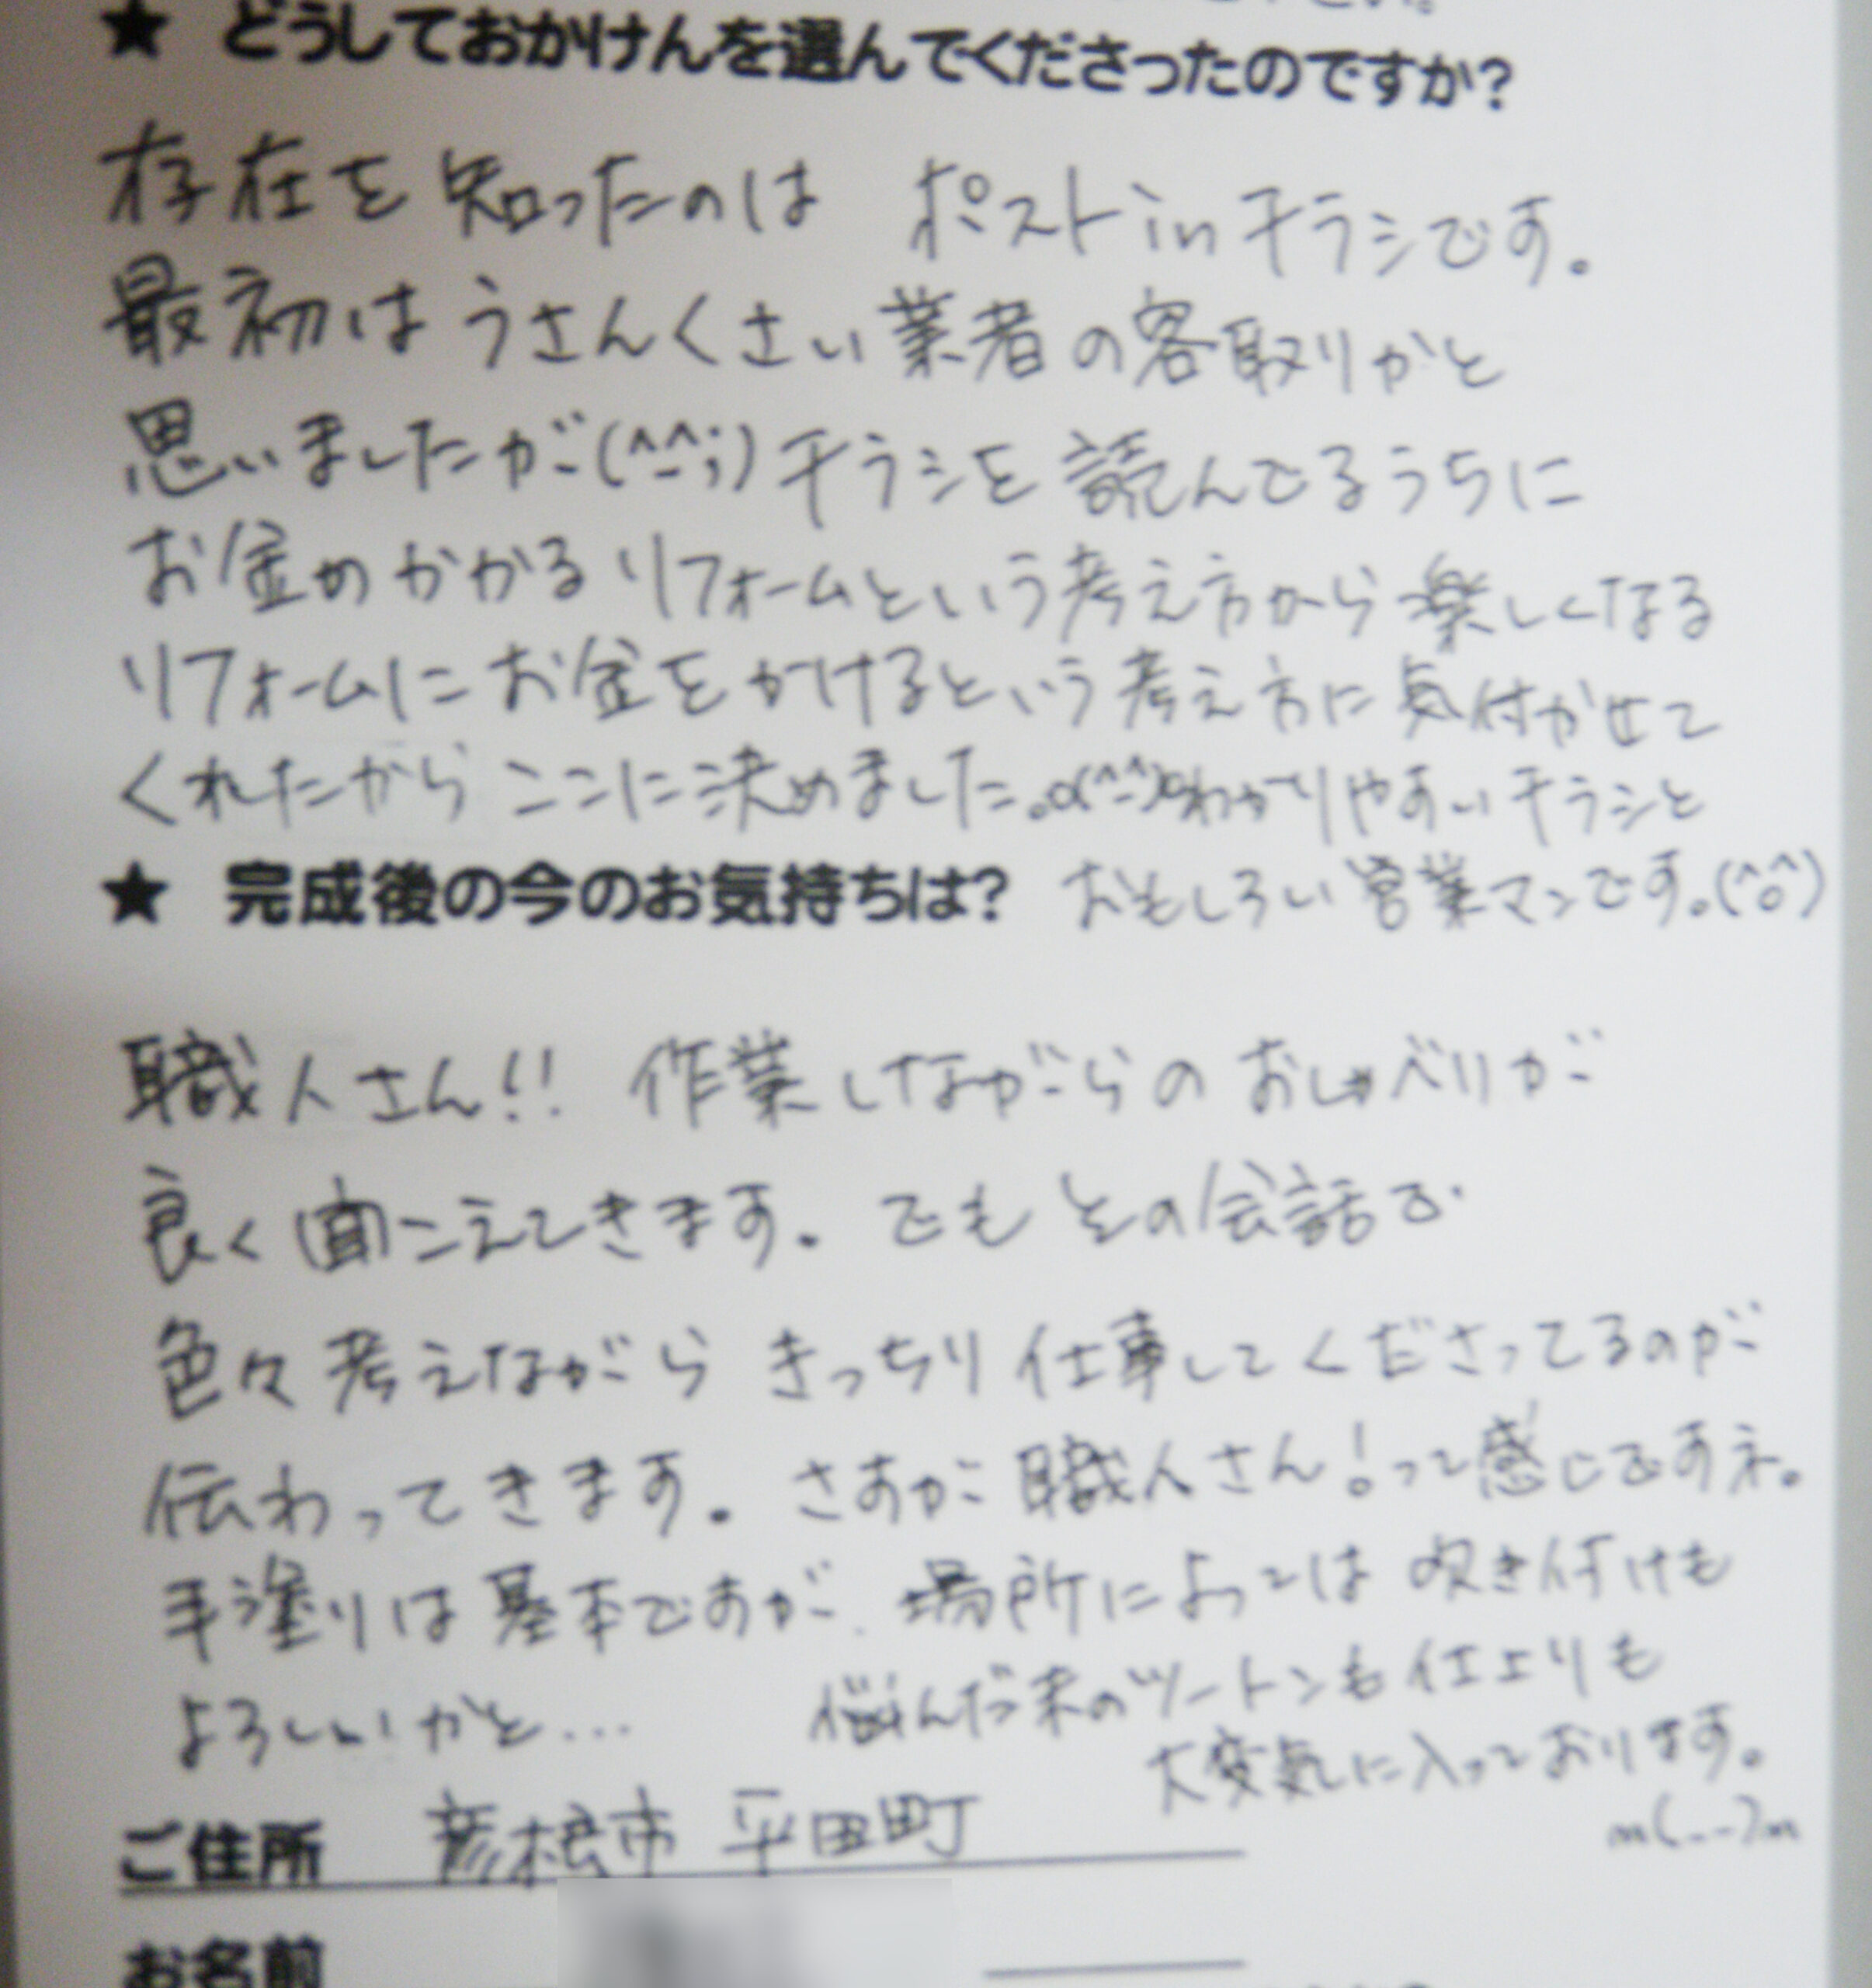 ★ どうしておかけんを選んでくださったのですか?
存在を知ったのは ポストinチラシです。
最初はうさんくさい業者の客取りかと
思いましたが(^_^;)チラシを読んでるうちに
お金のかかるリフォームという考え方から楽しくなる
リフォームにお金をかけるという考え方に気付かせて
くれたからここに決めました。o(^-^)oわかりやすいチラシと
おもしろい営業マンです。(^o^)
★ 完成後の今のお気持ちは?
職人さん!! 作業しながらのおしゃべりが
良く聞こえてきます。でもその会話で
色々考えながらきっちり仕事してくださってるのが
伝わってきます。さすが職人さん!って感じですネ。
手塗りは基本ですが、場所によっては吹き付けも
よろしいかと…
悩んだ末のツートンも仕上りも
大変気に入っております。
m(_ _)m
ご住所 彦根市 平田町
お名前